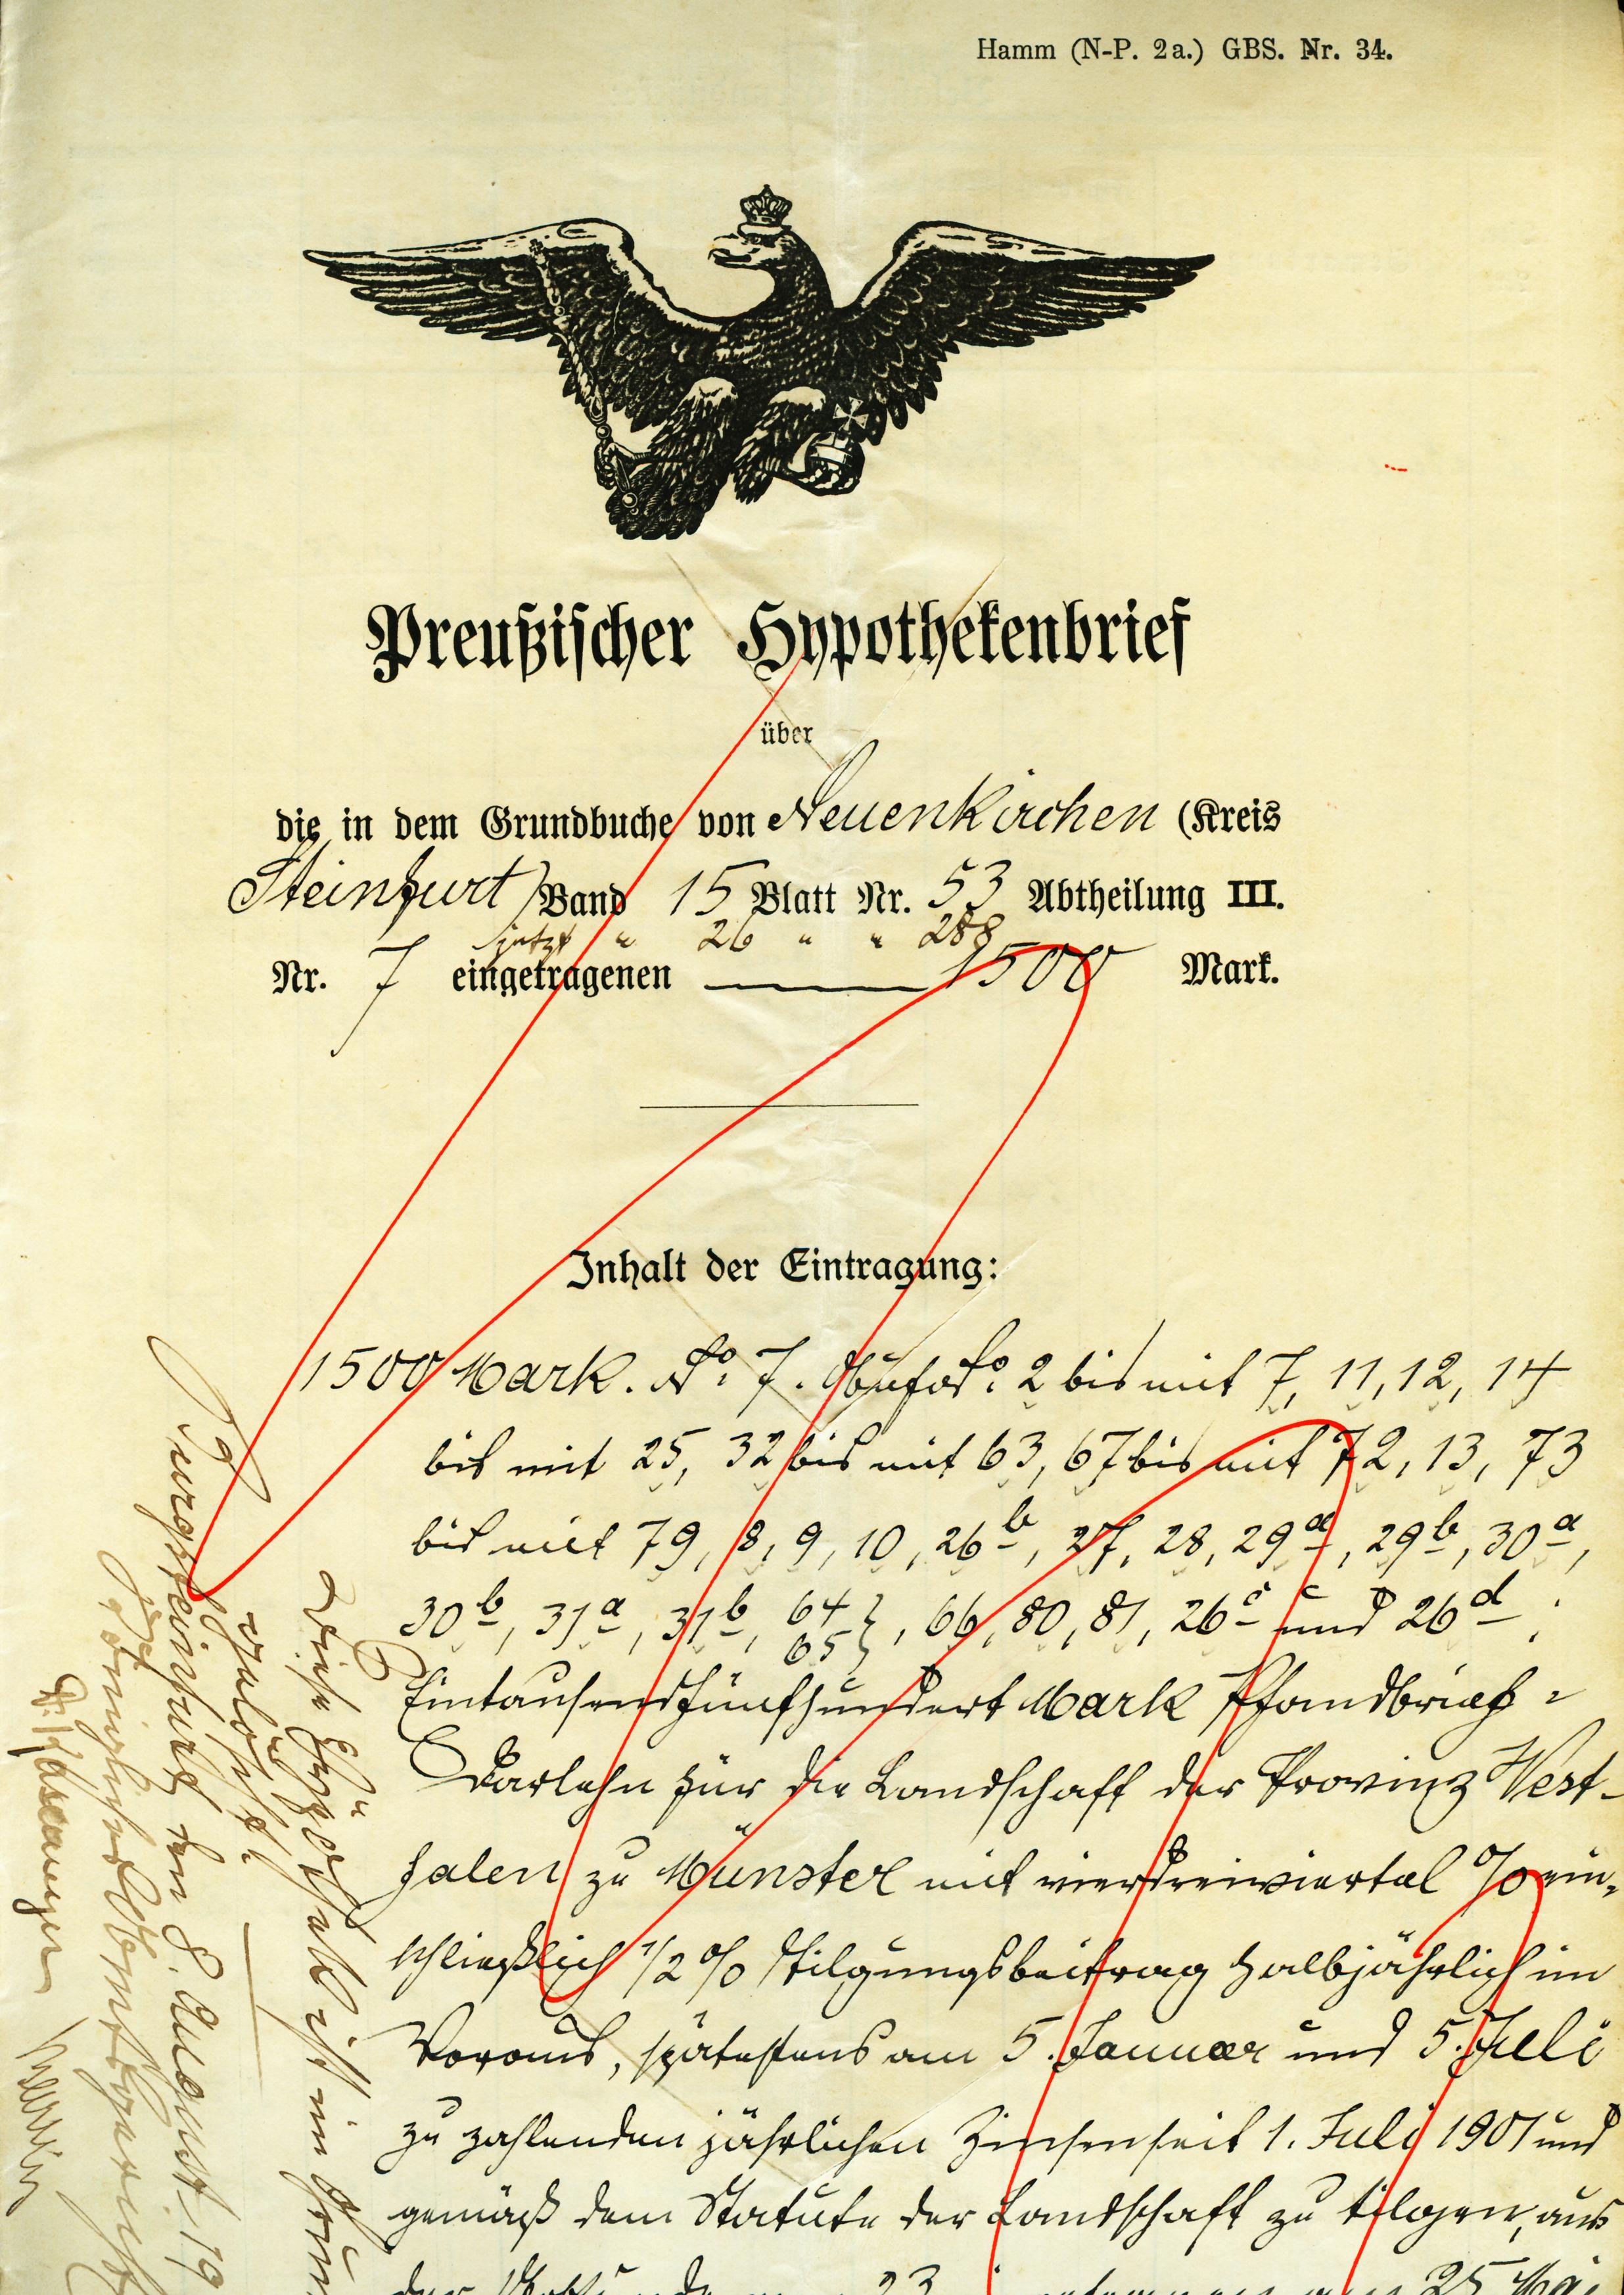 Hamm (N-P. 2a.) GBS. Nr. 34.
Preußischer Hypothekenbrief
über
die in dem Grundbuche von Neuenkirchen (Kreis
Steinfurt) Band 15 Blatt Nr. 53 Abtheilung III.
jetzt " 26 " " 288
Nr. 7 eingetragenen 1500 Mark.
Inhalt der Eintragung:
1500 Mark. No. 7. No. 2 bis mit 7, 11, 12, 14
bis mit 25, 32 bis mit 63, 67 bis mit 72, 13, 73
bis mit 79, 8, 9, 10, 26b, 27, 28, 29a, 29b, 30a,
30b, 31a, 31b, 64 65}, 66, 80, 81, 26c und 26d.
Eintausendfünfhundert Mark Pfandbrief-
Darlehn für die Landschaft der Provinz West-
falen zu Münster mit vierdreiviertel % ein-
schließlich 1/2 % Tilgungsbeitrag halbjährlich im
Voraus, spätestens am 5. Januar und 5. Juli
zu zahlenden jährlichen Zinsen seit 1. Juli 1901 und
gemäß dem Statute der Landschaft zu tilgen, aus
der 23 25 Mai
Diese Hypothek ist im
gelöscht.
Burgsteinfurt den 8. August 19
Königliches Amtsgericht